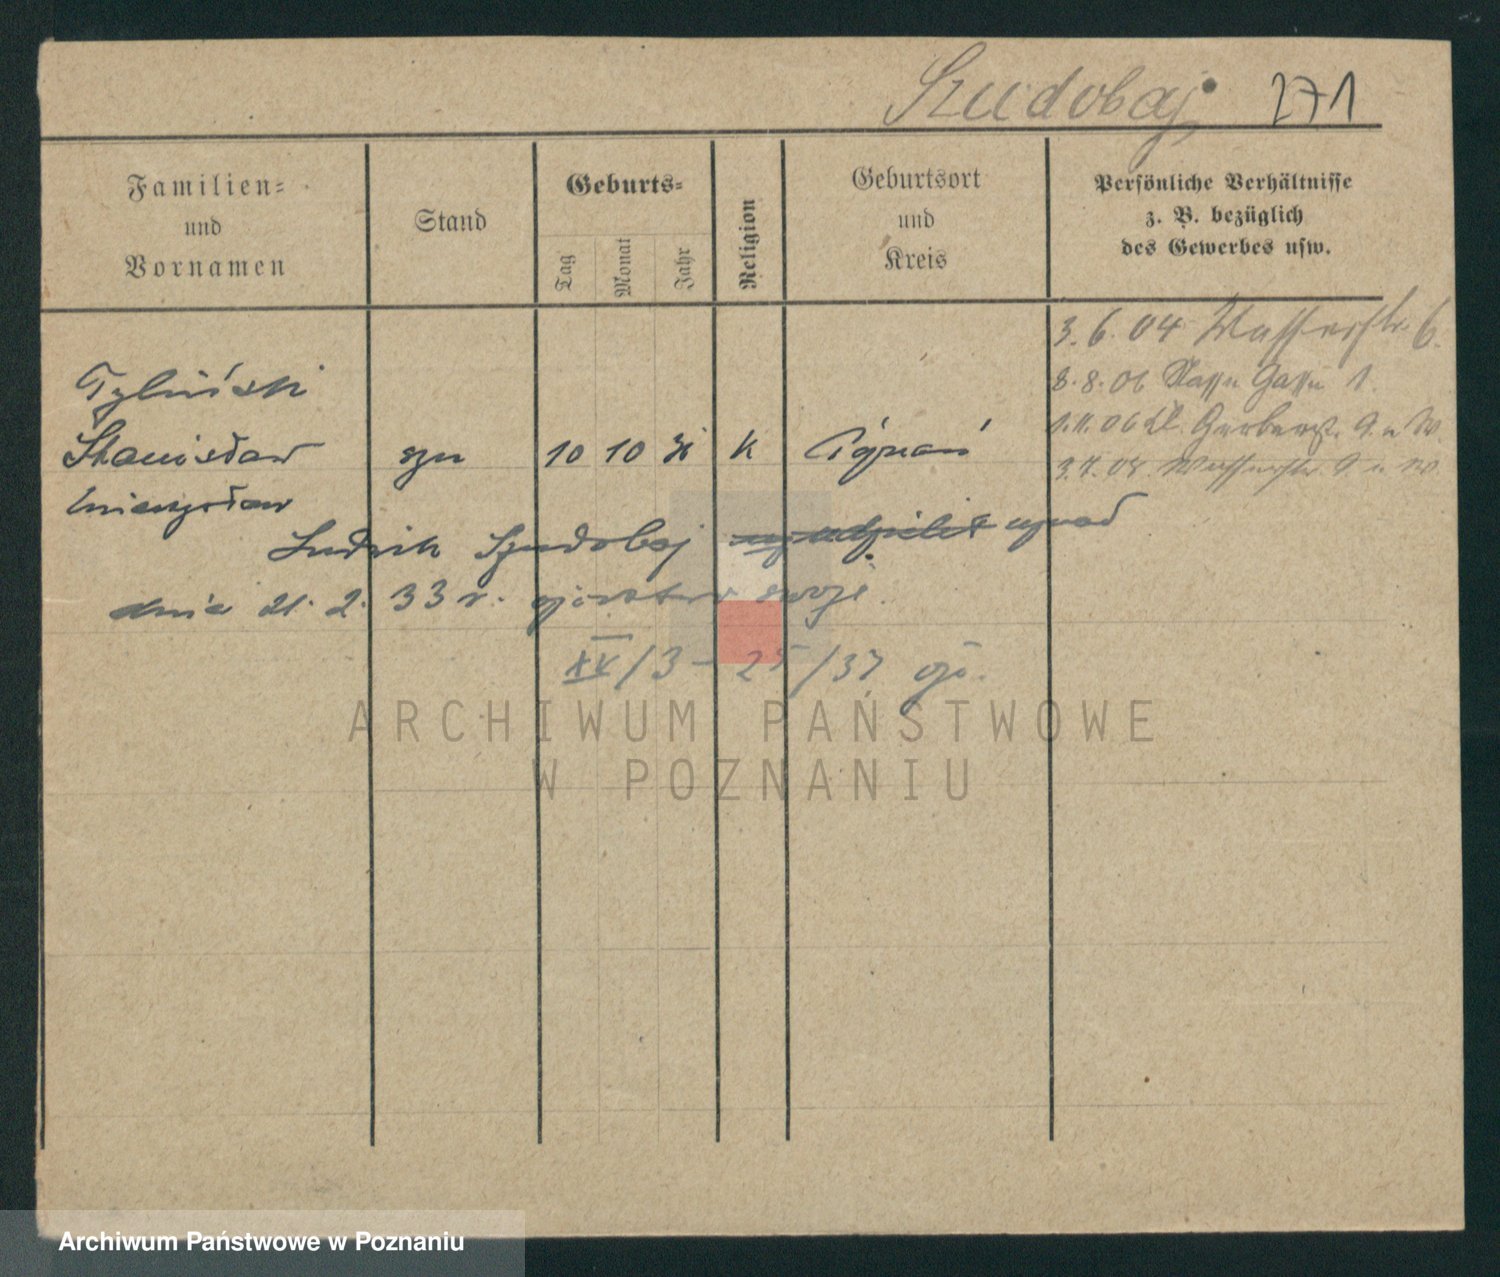 Szudobaj 271
Familien-
und
Vornamen
Stand
Geburts-
Tag
Monat
Jahr
Religion
Geburtsort
und
Kreis
Persönliche Verhältnisse
z. B. bezüglich
des Gewerbes usw.
3.6.04 Wasserstr. 6.
8.8.06 Nasse Gasse 1.
1.11.06 Kl. Gerberstr. 9. u W.
3.7.08. Wasserstr. 9 u W.
Tyliński
Stanisław syn 10 10 K Poznań
Mieczysław
Ludwik Szudobaj uznał
dnia 21. 2. 33 r. ojcostwo swoje
XV/3 - 25/37
ARCHIWUM PAŃSTWOWE
W POZNANIU
Archiwum Państwowe w Poznaniu